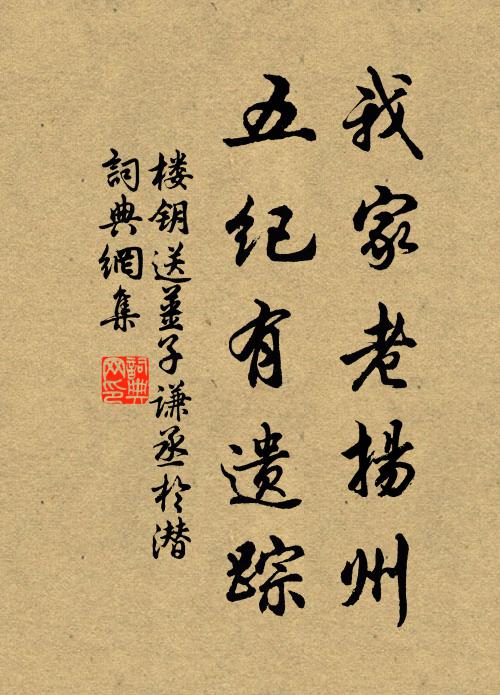 我家老揚州
五纪有遗踪
楼钥送薑子谦丞於潜
詞典網集
詞典网印